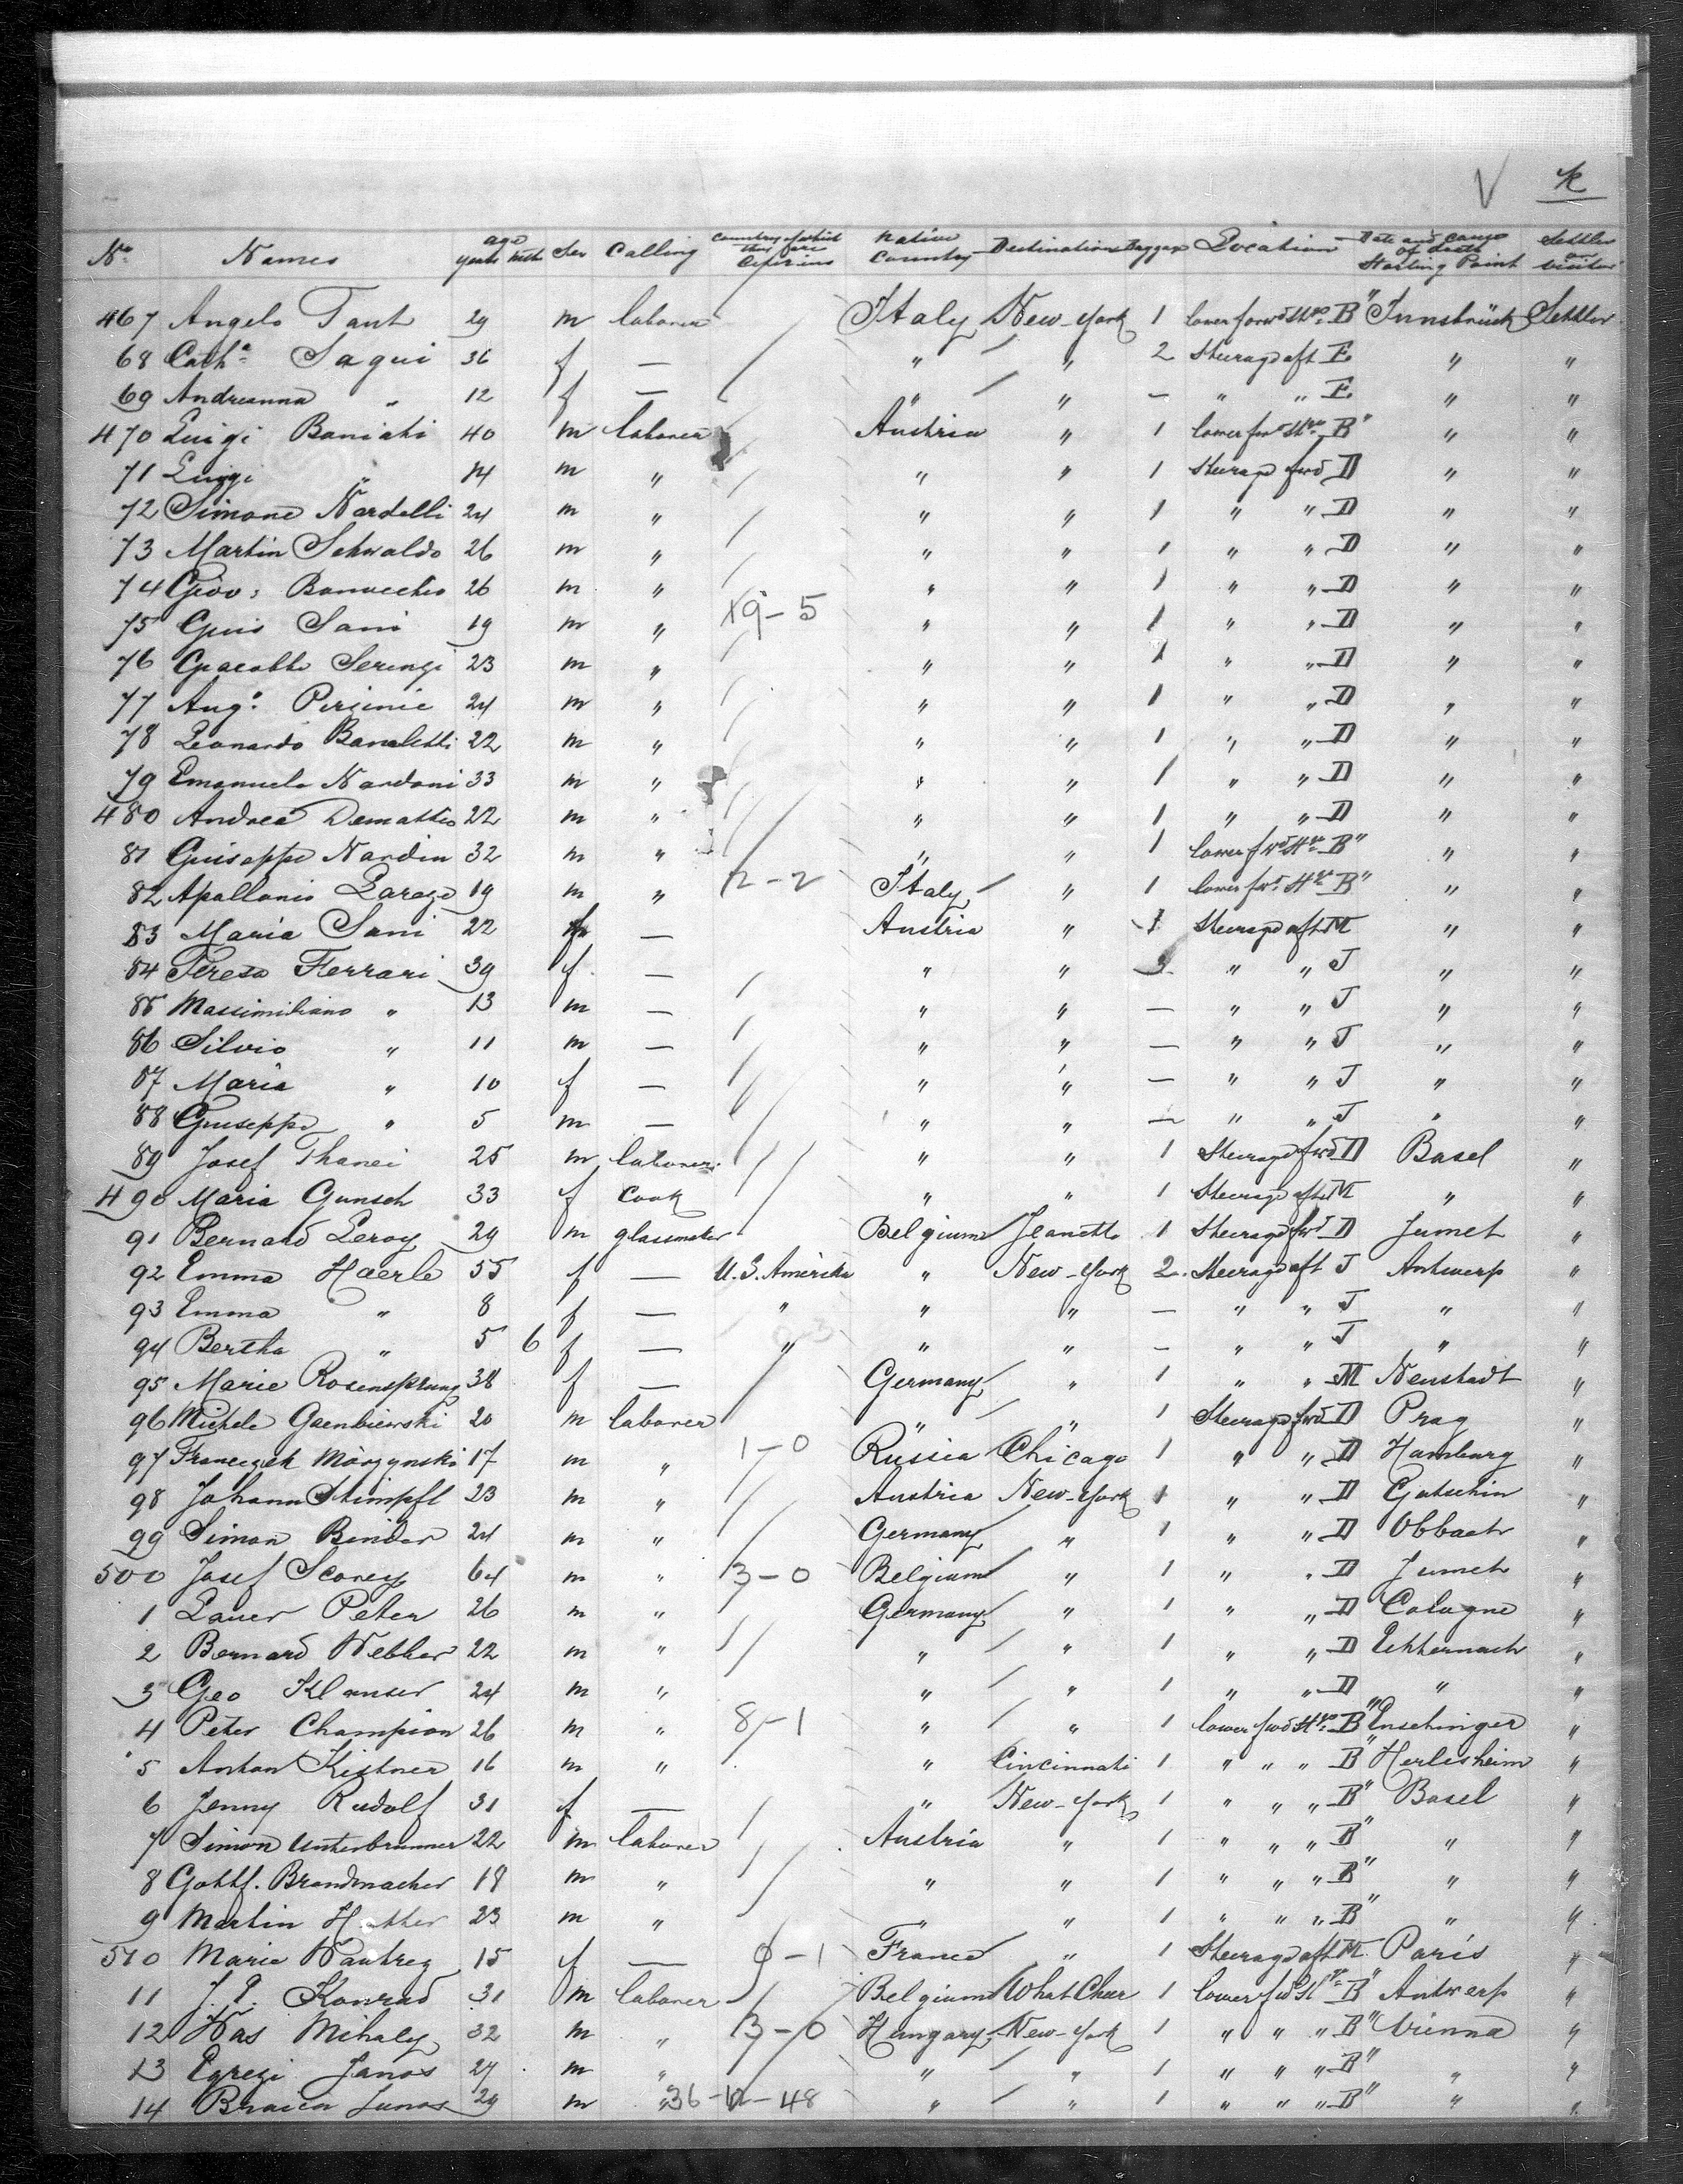 V k
No. Names age years mths Sex Calling Country of which they are Citizens Native Country Destination Baggage Location Date and Cause of death Starting Point Settler or visitor
467 Angelo Tant 29 m laborer Italy New-York 1 lower forwd Stge B" Innsbrück Settler
68 Cath.a Sagui 36 f — " " 2 Steerage aft E " "
69 Andreanna " 12 f — " " — " " E " "
470 Luigi Boniati 40 m laborer Austria " 1 lower fwd Stge B" " "
71 Luigi " 14 m " " " 1 Steerage fwd D " "
72 Simone Nardelli 24 m " " " 1 " " D " "
73 Martin Sehwaldo 26 m " " " 1 " " D " "
74 Giov: Bonvecchio 26 m " " " 1 " " D " "
75 Guis Sani 19 m " 19-5 " " 1 " " D " "
76 Giacobbe Serengi 23 m " " " 1 " " D " "
77 Aug: Perginie 24 m " " " 1 " " D " "
78 Leonardo Bonaletti 22 m " " " 1 " " D " "
79 Emanuele Nardoni 33 m " " " 1 " " D " "
480 Andrea Demattio 22 m " " " 1 " " D " "
81 Guiseppe Nardin 32 m " " " 1 lower fwd Stge B" " "
82 Apollonio Parage 19 m " 12-2 Italy " 1 lower fwd Stge B" " "
83 Maria Sani 22 f — Austria " 1 Steerage aft M " "
84 Teresa Ferrari 39 f — " " 3 " " J " "
85 Massimiliano " 13 m — " " — " " J " "
86 Silvio " 11 m — " " — " " J " "
87 Maria " 10 f — " " — " " J " "
88 Guiseppe " 5 m — " " — " " J " "
89 Josef Thanei 25 m laborer " " 1 Steerage fwd D Basel "
490 Maria Gunsch 33 f Cook " " 1 Steerage aft M " "
91 Bernard Leroy 29 m glassmaker Belgium Jeanette 1 Steerage fwd D Jumet "
92 Emma Haerle 55 f — U.S. Amerika " New-York 2 Steerage aft J Antwerp "
93 Emma " 8 f — " " " — " " J " "
94 Bertha " 5 6 f — " " " — " " J " "
95 Marie Rosensprung 38 f — Germany " 1 " " M Neustadt "
96 Michele Gaenbiewski 20 m laborer " " 1 Steerage fwd D Prag "
97 Franciszek Morzynski 17 m " 1-0 Russia Chicago 1 " " D Hamburg "
98 Johann Stimpfl 23 m " Austria New-York 1 " " D Gutschin "
99 Simon Binder 24 m " Germany " 1 " " D Obbach "
500 Josef Scorey 64 m " 3-0 Belgium " 1 " " D Jumet "
1 Lauer Peter 26 m " Germany " 1 " " D Cologne "
2 Bernard Webber 22 m " " " 1 " " D Echternach "
3 Geo Klauser 24 m " " " 1 " " D " "
4 Peter Champion 26 m " 8-1 " " 1 lower fwd Stge B" Enschinger "
5 Anton Kistner 16 m " " Cincinnati 1 " " " B" Herlisheim "
6 Jenny Rudolf 31 f — " New-York 1 " " " B" Basel "
7 Simon Unterbrunner 22 m laborer Austria " 1 " " " B" " "
8 Gottf. Brandmacher 18 m " " " 1 " " " B" " "
9 Martin Hutter 23 m " " " 1 " " " B" " "
510 Marie Vautrey 15 f — 9-1 France " 1 Steerage aft M Paris "
11 J.P. Konrad 31 m laborer Belgium What Cheer 1 lower fwd Stge B" Antwerp "
12 Was Mihaly 32 m " 3-0 Hungary New-York 1 " " " B" Vienna "
13 Egregi Janos 27 m " " " 1 " " " B" " "
14 Janos 29 m " 36-12-48 " " 1 " " " B" " "